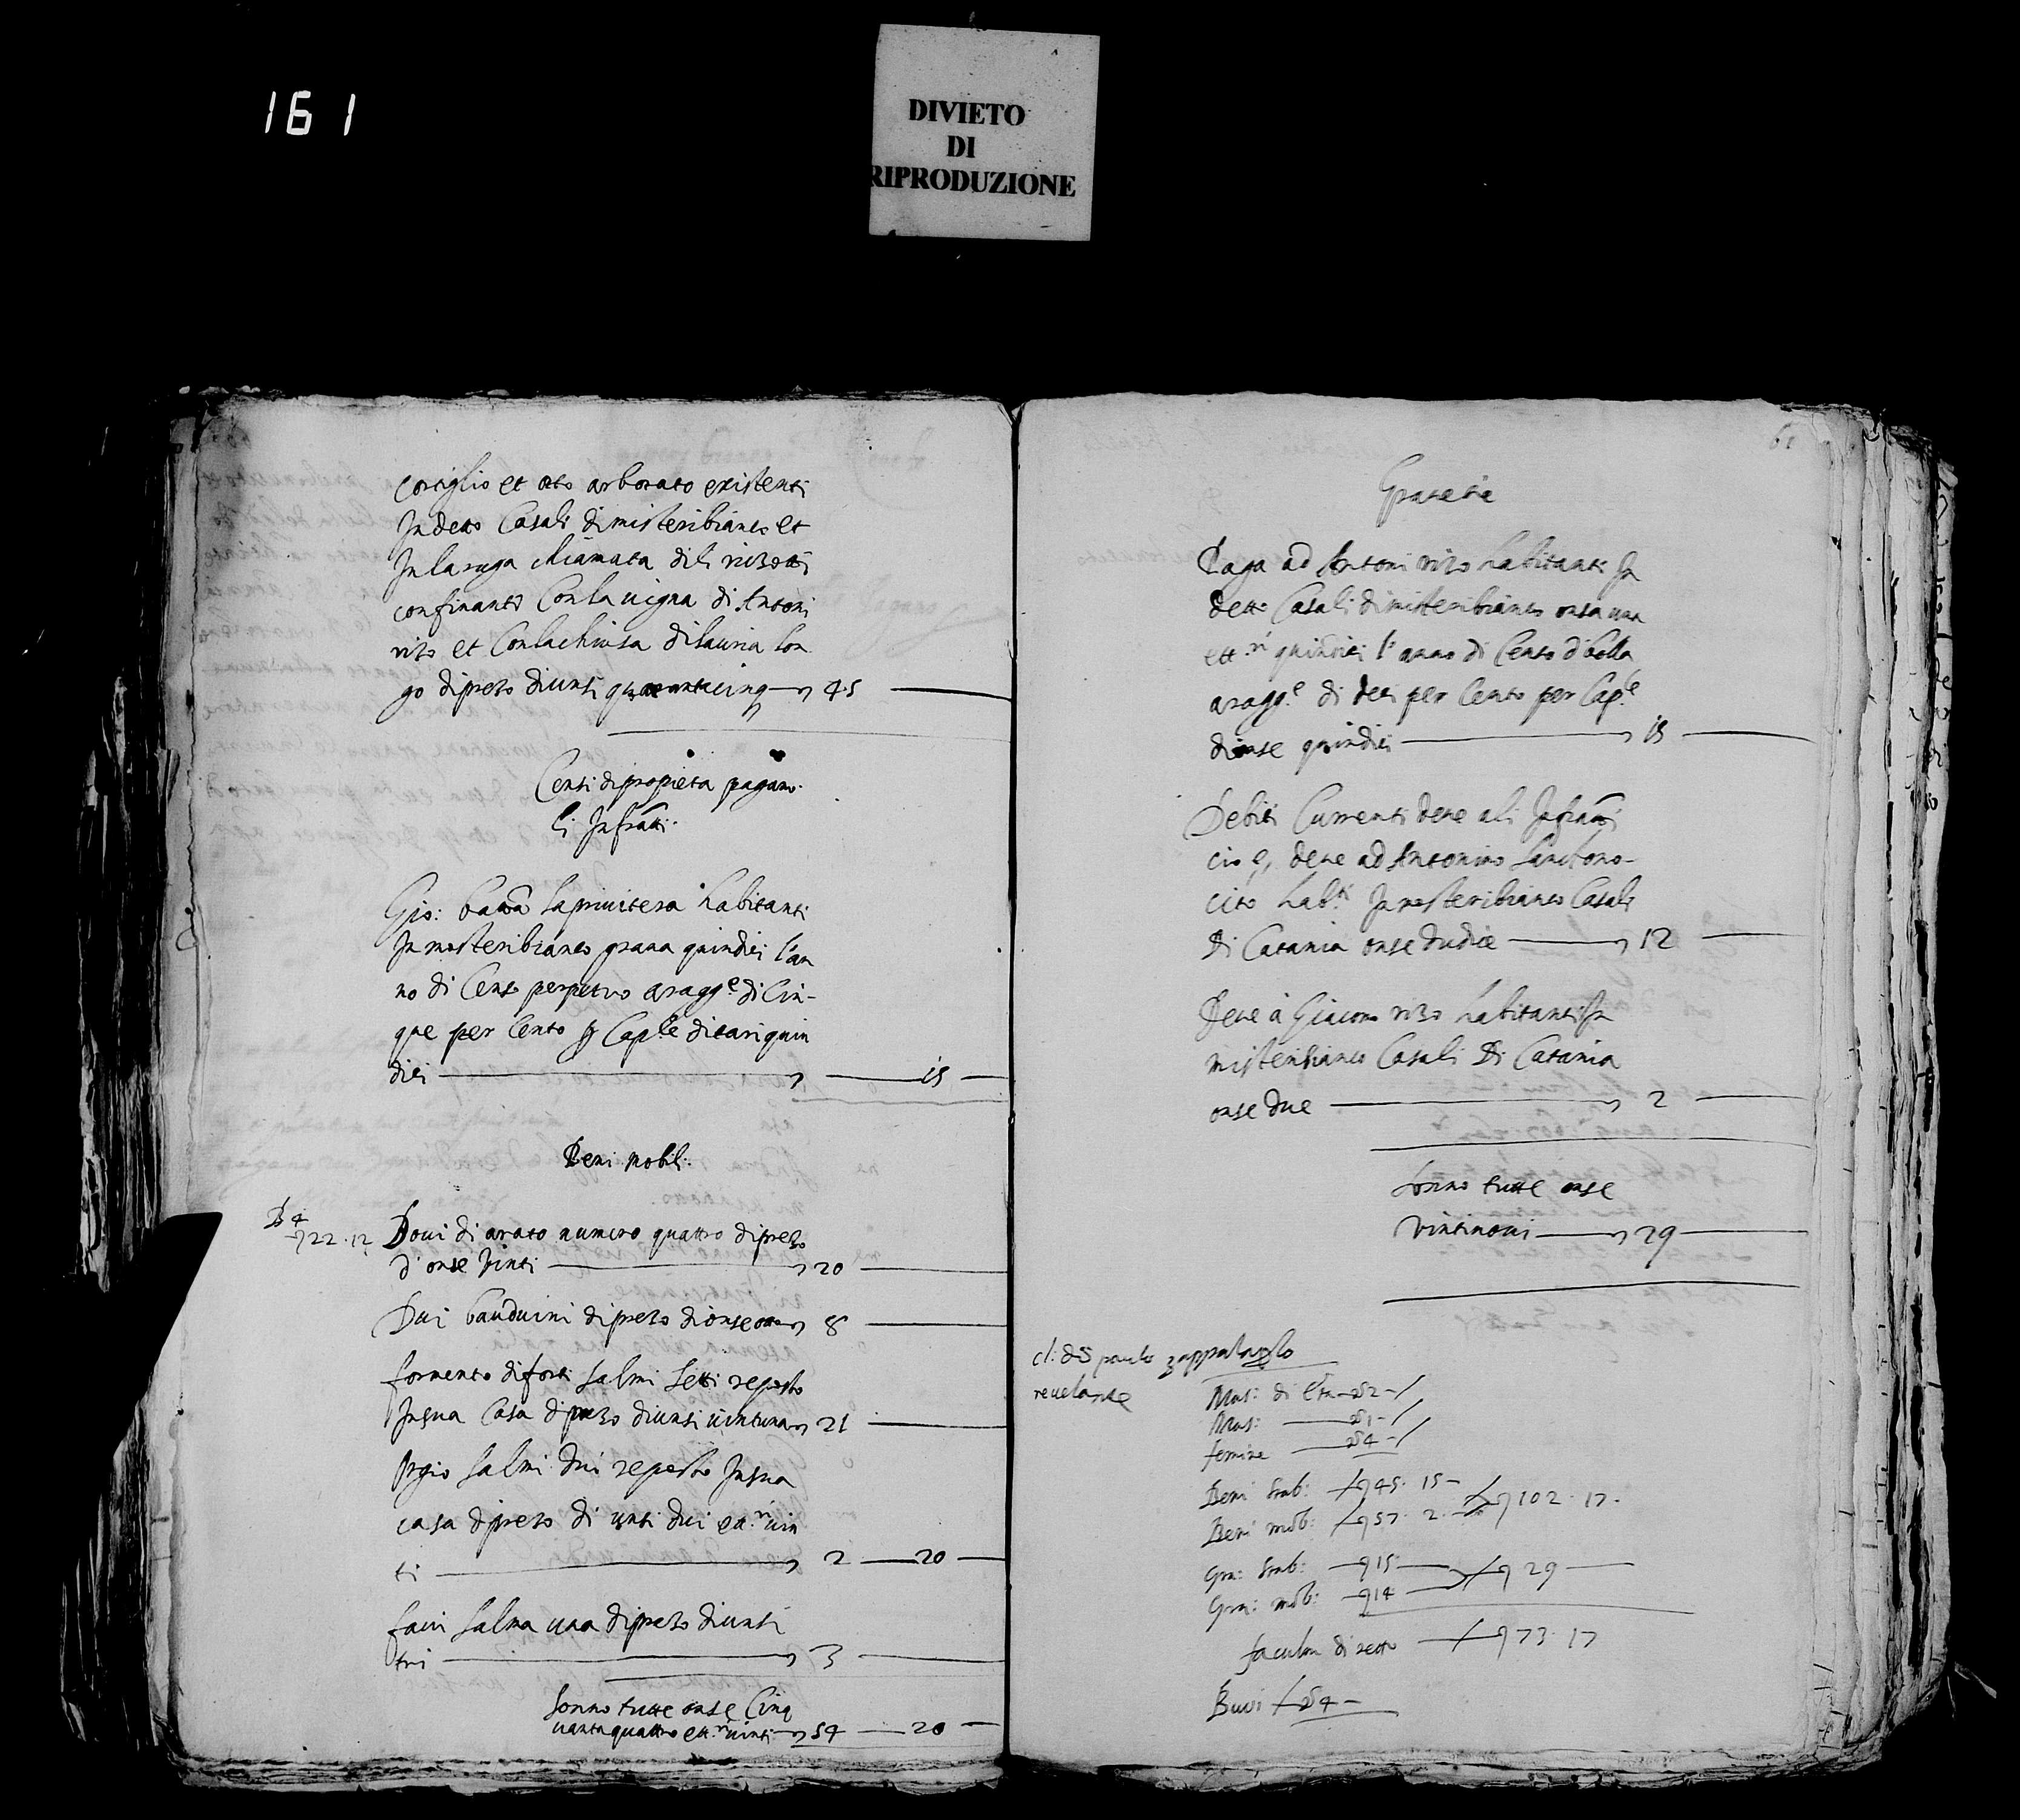 161
DIVIETO
DI
RIPRODUZIONE
Cortiglio et orto arborato existenti
In detto Casali di misteribianco et
In la ruga chiamata di li rizotti
confinanti Con la vigna di Antoni
rizo et Con la chiusa di lauria lon
go di prezo di unsi quarantacinq 45
Censi di propieta pagano
li Infratti
Gio: batta Saprimitera habitanti
In mosteribianco grana quindici l'an
no di Censo perpetuo a ragg.e di Cin-
que per Cento p Cap.le di tari quin
dici 15
Beni mobili
B 4
22.12 Boui di arato numero quattro di prezo
d'onse vinti 20
Dui bauduini di prezo di onse otto 8
formento di forti salmi setti reposto
In sua Casa di prezo di unsi vintuna 21
Orgio salmi dui reposto In sua
casa di prezo di unsi dui et t.ri vin
ti 2 20
favi salma una di prezo di unsi
tri 3
Sonno tutte onse Cinq
uantaquattro et t.ri vinti 54 20
61
Gravetie
Paga ad Antoni rizo habitanti In
detto Casali di misteribianco onsa una
et t.ri quindici l'anno di Censo di bolla
a ragg.e di deci per Cento per Cap.le
di onse quindici 15
Debiti Currenti deve a li Infratti
cio e, deve ad Antonino Santono-
cito hab.ti In mosteribianco Casali
di Catania onse dudice 12
Deve à Giacomo rizo habitanti In
misteribianco Casali di Catania
onse due 2
Sonno tutte onse
vintinovi 29
cl: d S paulo zappalarlo
revelante
Mas: di Età 2
Mas: 1
femine 4
Beni stab: 45. 15
Beni mob: 57. 2. 102. 17.
Gra: stab: 15
Gra: mob: 14 29
facultà di netto 73. 17
Buoi 4